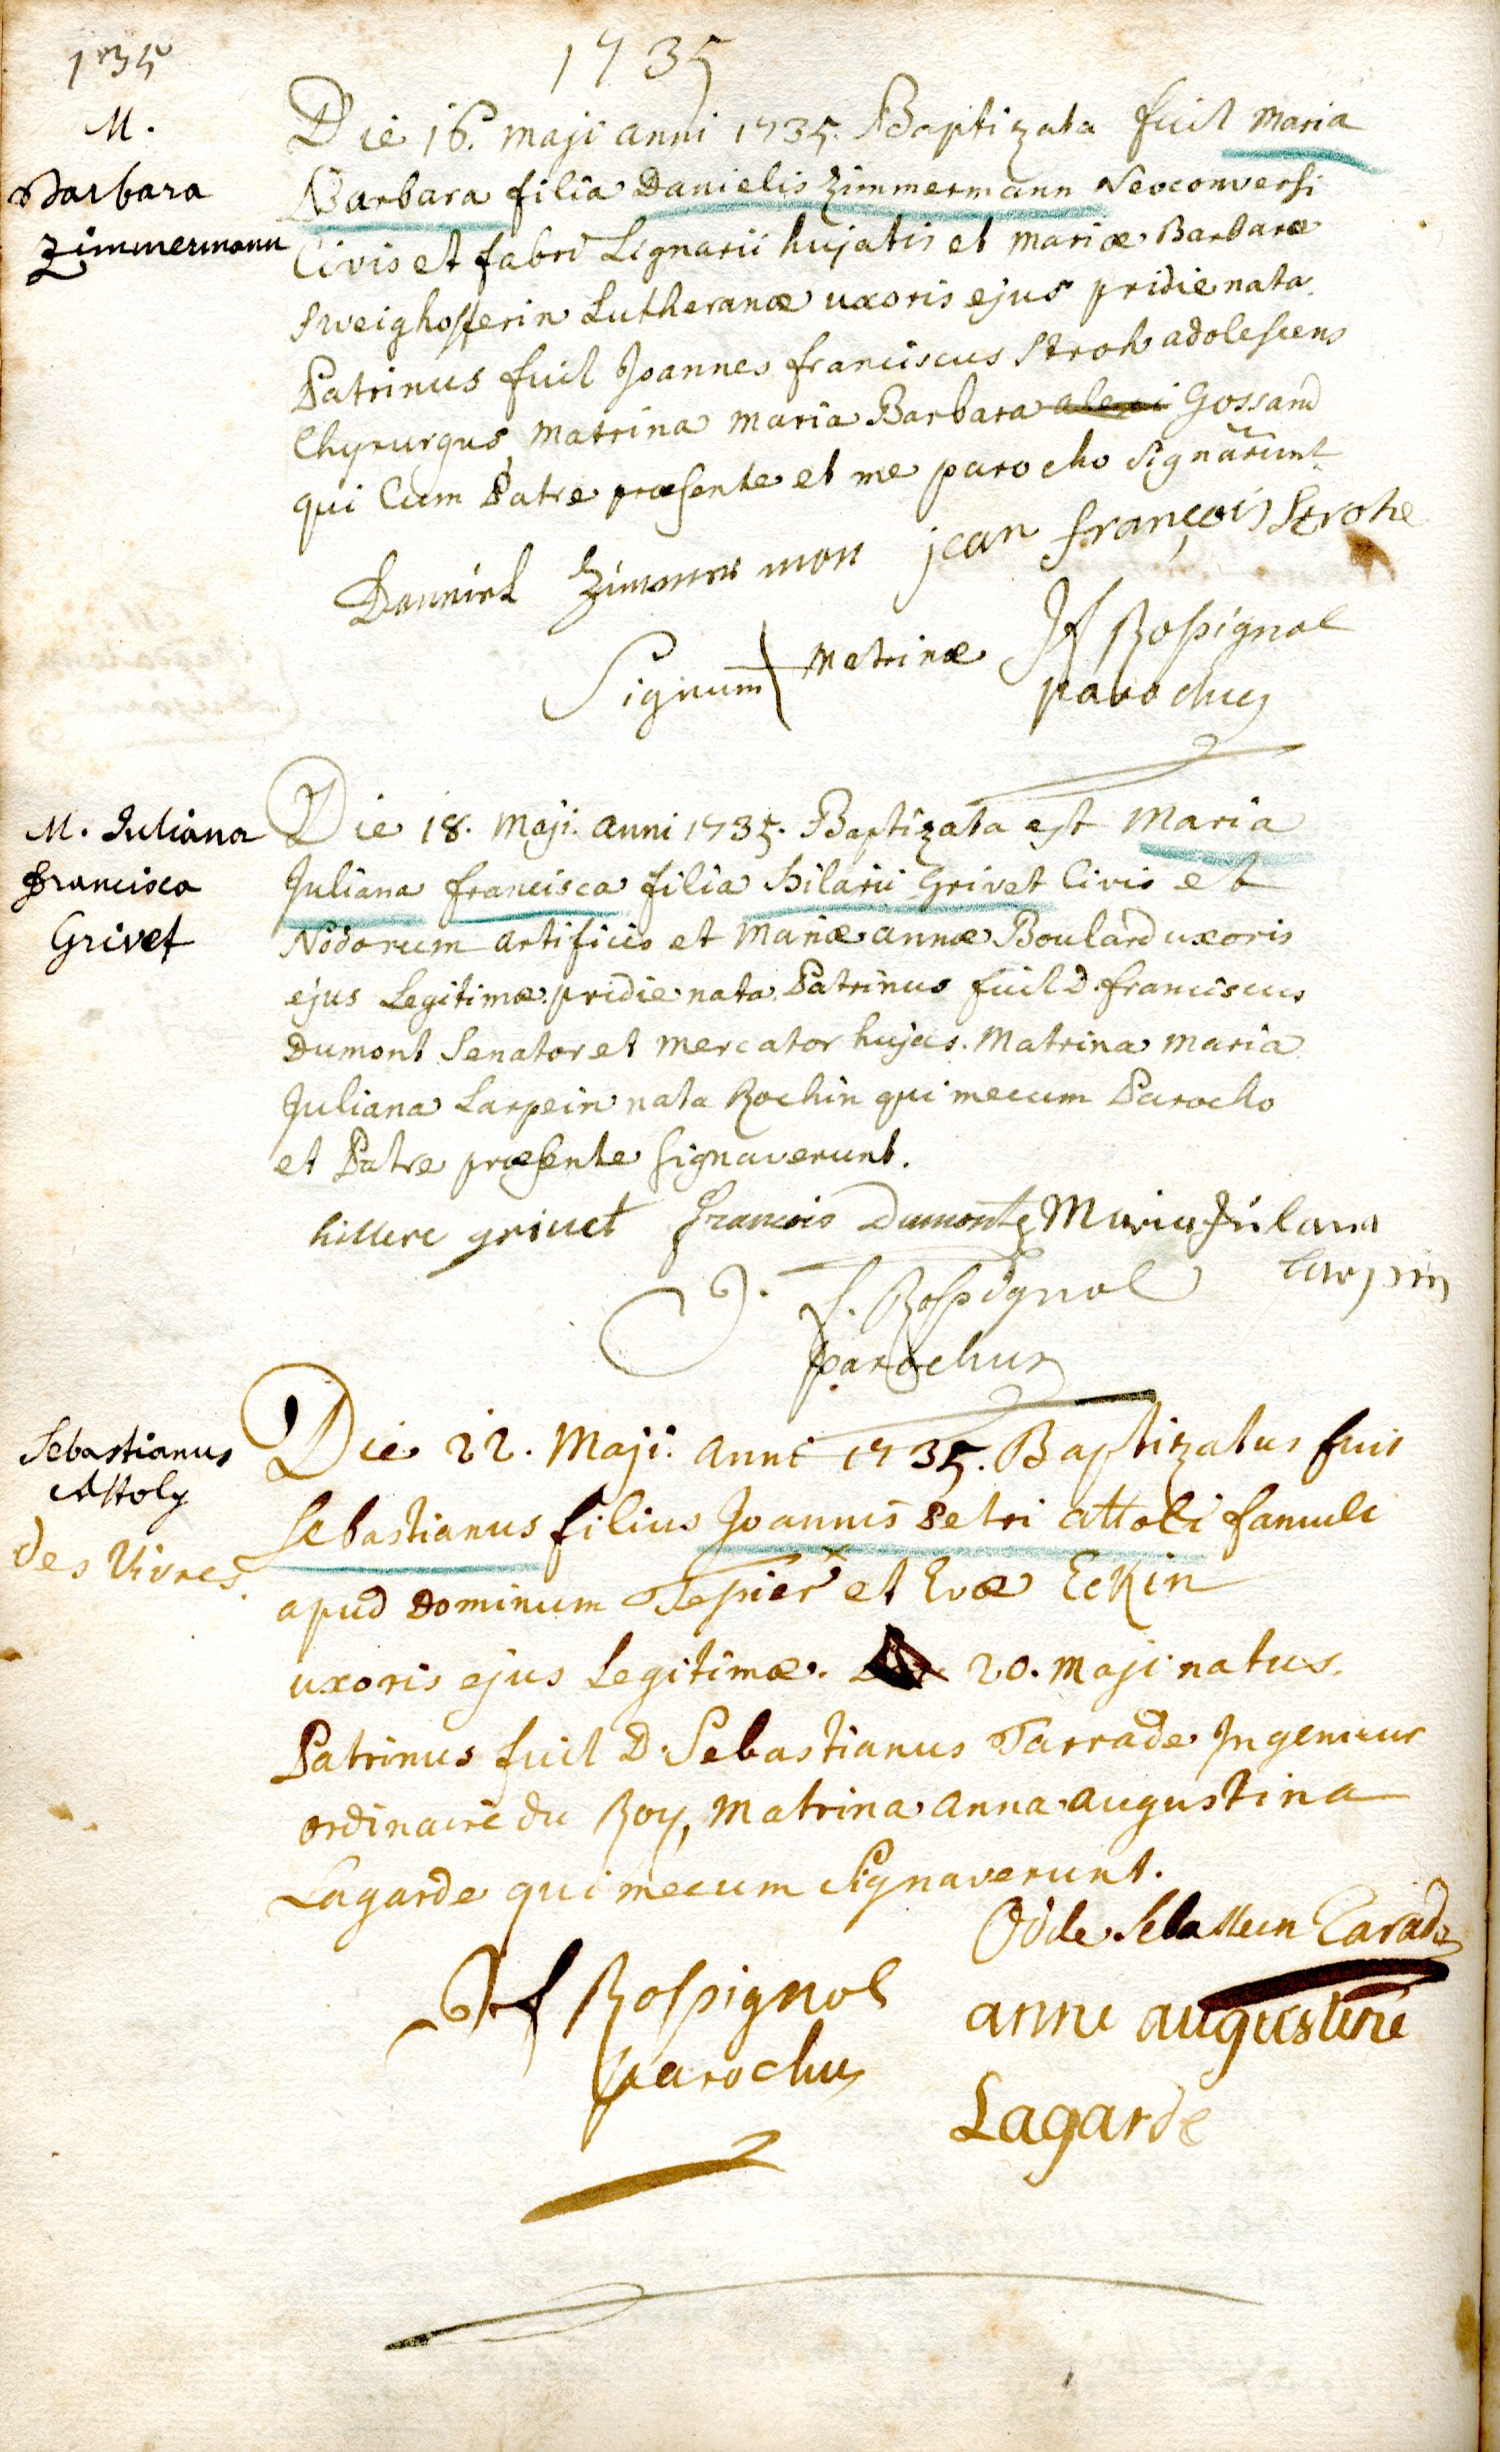 1735
1735
M.
Barbara
Zimmermann
Die 16. maji anni 1735. Baptizata fuit maria
Barbara filia Danielis Zimmermann Neoconversi
Civis et fabri Lignarii hujatis et mariæ Barbaræ
Sweighofferin Lutheranæ uxoris ejus pridie nata
Patrinus fuit Joannes franciscus Stroh adolescens
Chyrurgus, matrina maria Barbara Gossand
qui Cum Patre præsente et me parocho signârunt
Danniel Zimmermon jean françois Strohe
Signum matrinæ Jf Rossignol
parochus
M. Juliana
Francisca
Grivet
Die 18. maji. anni 1735. Baptizata est Maria
Juliana francisca filia Hilarii Grivet Civis et
Nodorum artificis et mariæ annæ Boulard uxoris
ejus Legitimæ pridie nata. Patrinus fuit D. franciscus
Dumont Senator et mercator hujas. Matrina maria
Juliana Larpein nata Rochin qui mecum Parocho
et Patre præsente signaverunt.
hillere grivet francois Dumont Maria Julana
Larpin
J. f. Rossignol
parochus
Sebastianus
Attoly
des Vivres.
Die 22. Maji. anni 1735. Baptizatus fuit
Sebastianus filius Joannis Petri attoli famuli
apud Dominum Tessier x et Evæ Eckin
uxoris ejus Legitimæ. 20. maji natus.
Patrinus fuit D. Sebastianus Tarrade Ingenieur
ordinaire du Roy, matrina anna augustina
Lagarde qui mecum signaverunt.
Odile Sebastien Tarade
Jf Rossignol
parochus
anne augustine
Lagarde